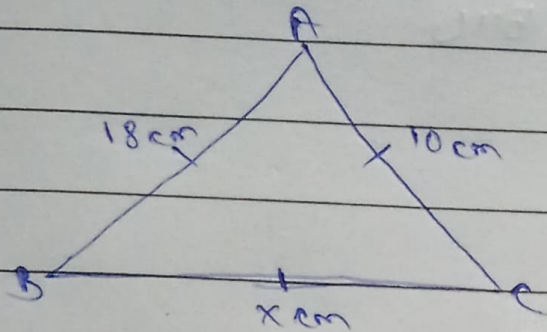 A
18 cm
10 cm
B
C
x cm